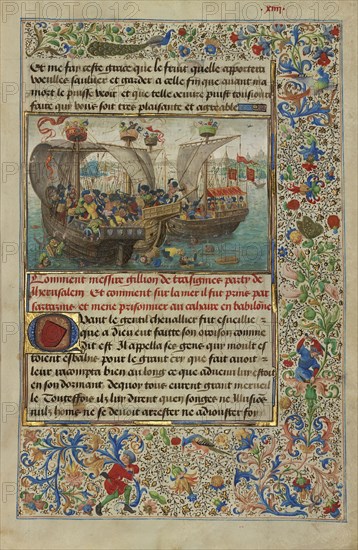 xiiii.
Et me fay ceste grace que le fruit quelle apportera
vueilles sauluer et garder a celle fin que auant ma
mort le puisse veoir et que telle oeuure puist tousiours
faire qui vous soit tres plaisante et agreable
Comment messire gillion de trasignies party de
Iherusalem. Et comment sur la mer il fut prins par
sarrazins et mene prisonnier au cahaire en babilone
Quant le gentil cheuallier fut esueille
que a Dieu eut faitte son oroison comme
Dit est. Il appella ses gens quy moult es
toient esbahis pour le grant cry que fait auoit
leur racompta bien au long ce que aduenu luy estoit
en son dormant. Dequoy tous eurent grant merueil
le Touteffois ilz luy dirent quen songes ne illusions
nulz homs ne se deuoit arrester ne adiouster foy